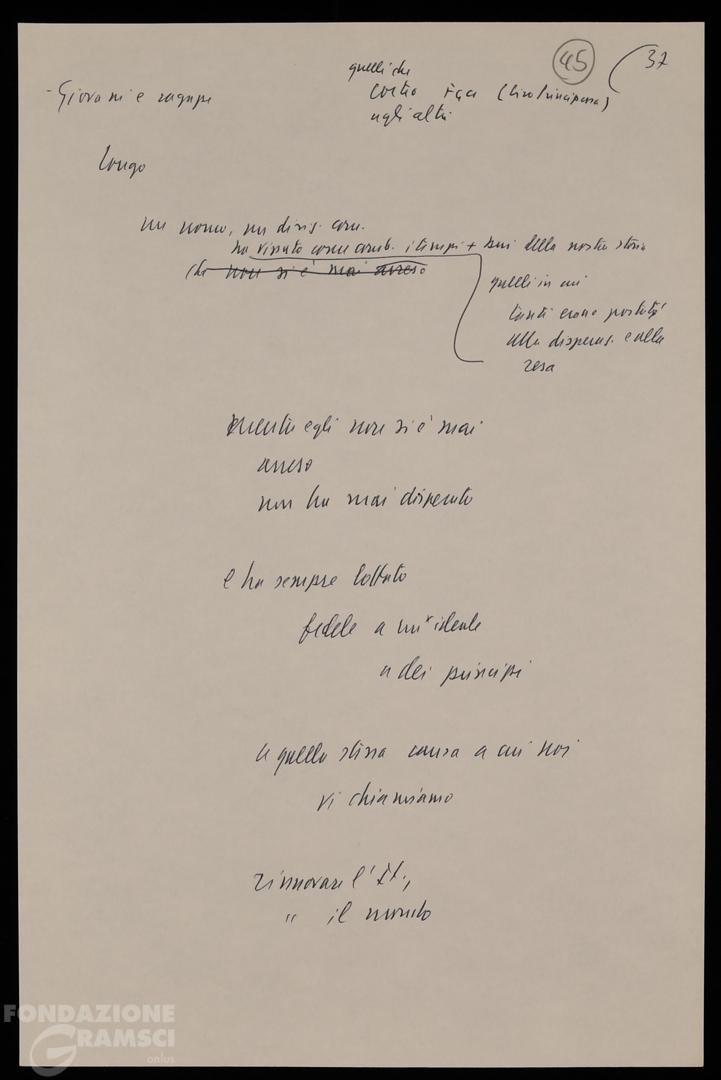 45
37
quelli che
- Giovani e ragazze
agli altri
Longo
un uomo, un dirig. com.
ha vissuto come comb. i tempi + bui della nostra storia
che non si è mai arreso
quelli in cui
tanti erano portati
alla disperaz. e alla
resa
mentre egli non si è mai
arreso
non ha mai disperato
e ha sempre lottato
fedele a un'ideale
a dei principi
a quella stessa causa a cui noi
vi chiamiamo
rinnovare l'It.,
" il mondo
FONDAZIONE
GRAMSCI
onlus